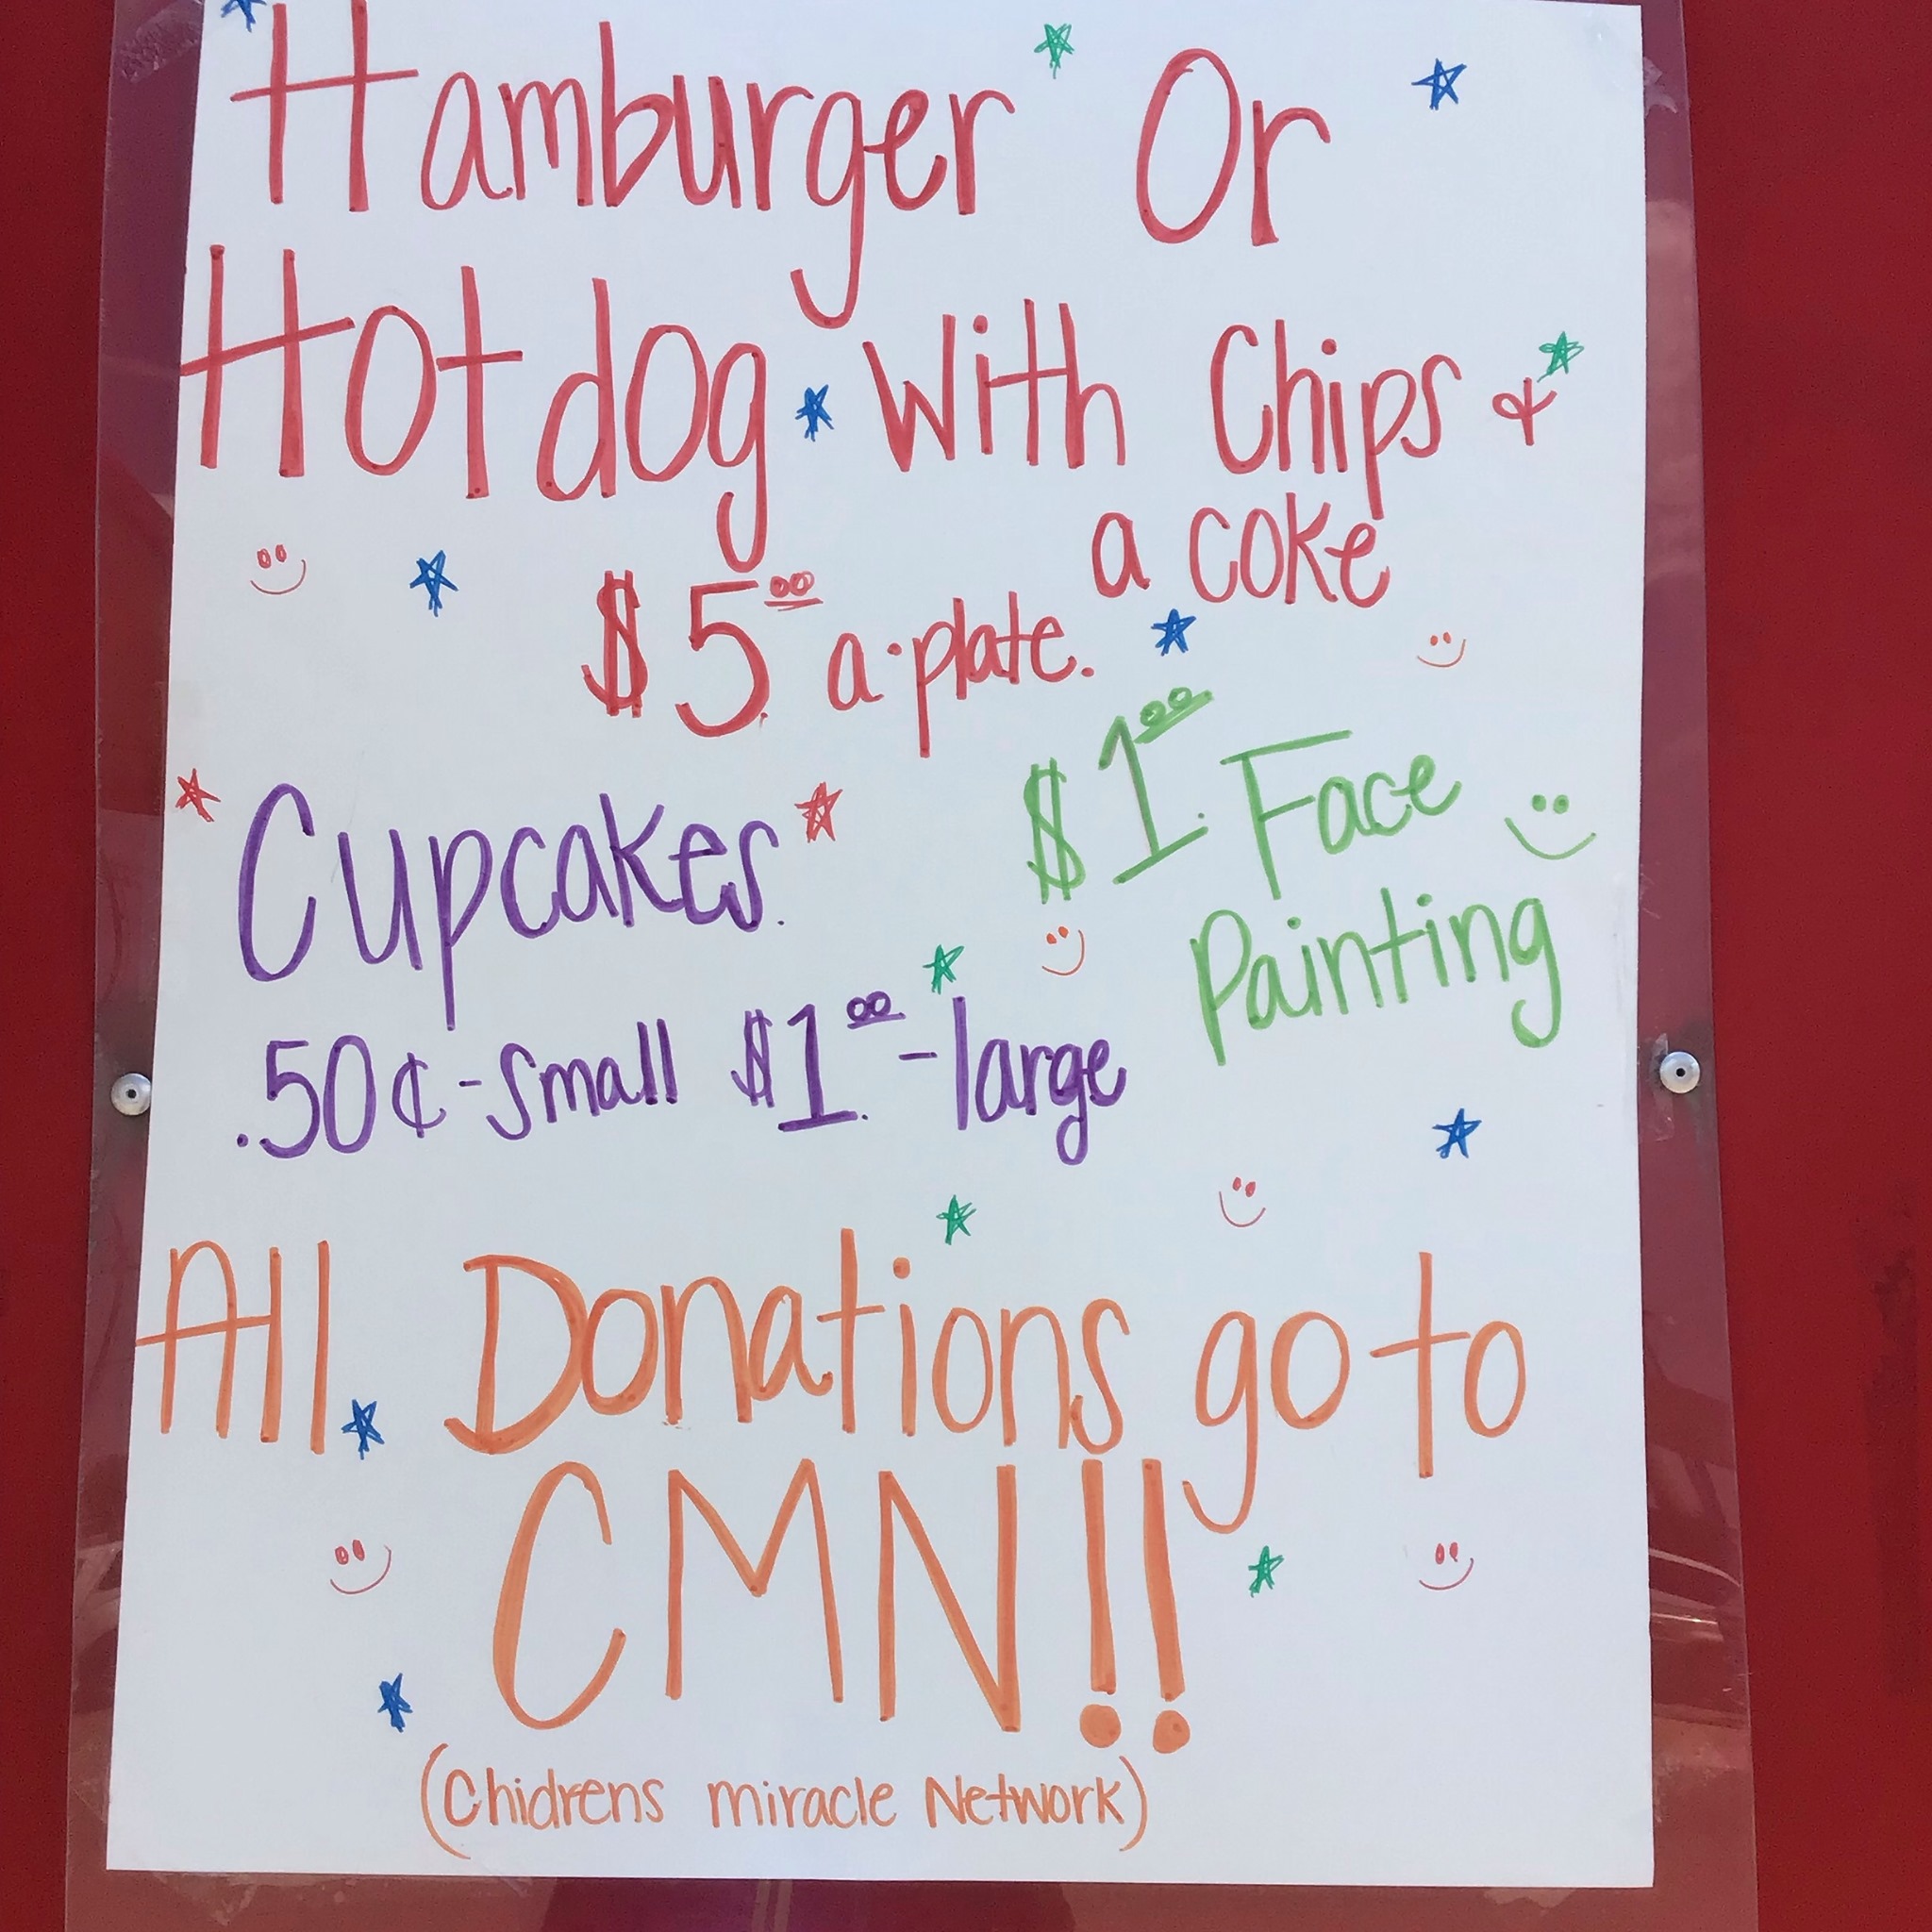 Hamburger Or
Hotdog with Chips &
a coke
$5.00 a plate.
Cupcakes
.50¢ - Small $1.00 - large
$1.00 Face
Painting
All Donations go to
CMN!!
(Chidrens miracle Network)